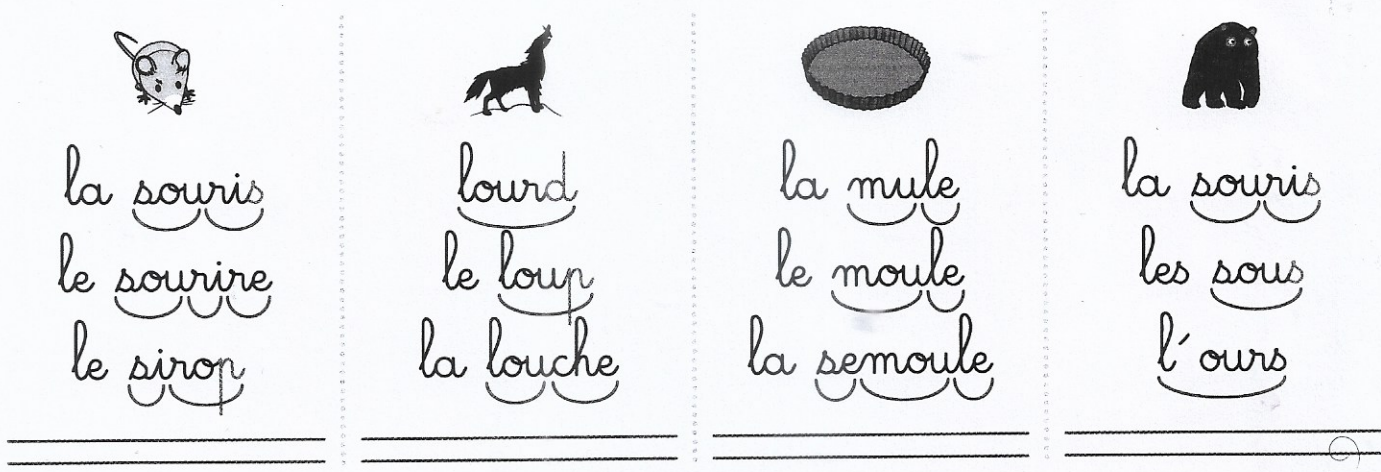 la souris
le sourire
le sirop
lourd
le loup
la louche
la mule
le moule
la semoule
la souris
les sous
l'ours